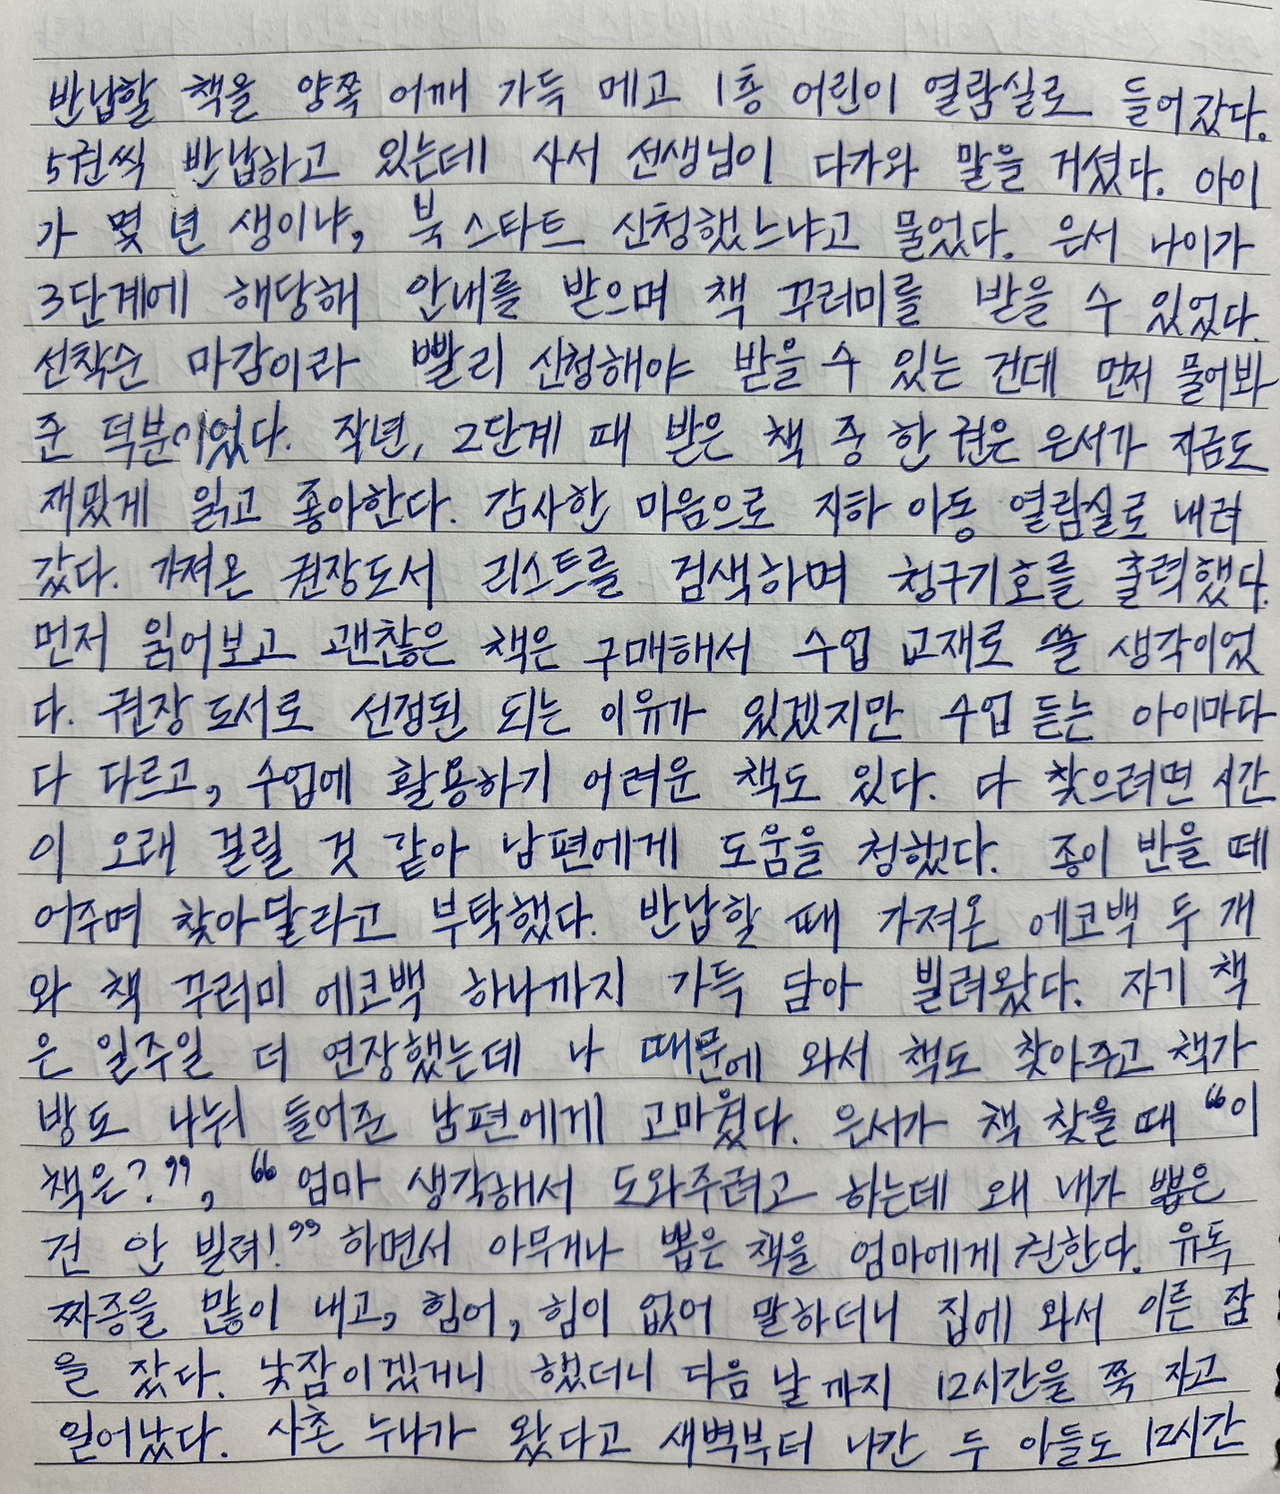 반납할 책을 양쪽 어깨 가득 메고 1층 어린이 열람실로 들어갔다.
5권씩 반납하고 있는데 사서 선생님이 다가와 말을 거셨다. 아이
가 몇 년 생이냐, 북스타트 신청했느냐고 물었다. 은서 나이가
3단계에 해당해 안내를 받으며 책 꾸러미를 받을 수 있었다.
선착순 마감이라 빨리 신청해야 받을 수 있는 건데 먼저 물어봐
준 덕분이었다. 작년, 2단계 때 받은 책 중 한 권은 은서가 지금도
재밌게 읽고 좋아한다. 감사한 마음으로 지하 아동 열람실로 내려
갔다. 가져온 권장도서 리스트를 검색하며 청구기호를 출력했다.
먼저 읽어보고 괜찮은 책은 구매해서 수업 교재로 쓸 생각이었
다. 권장도서로 선정된 되는 이유가 있겠지만 수업 듣는 아이마다
다 다르고, 수업에 활용하기 어려운 책도 있다. 다 찾으려면 시간
이 오래 걸릴 것 같아 남편에게 도움을 청했다. 종이 반을 떼
어주며 찾아달라고 부탁했다. 반납할 때 가져온 에코백 두 개
와 책 꾸러미 에코백 하나까지 가득 담아 빌려왔다. 자기 책
은 일주일 더 연장했는데 나 때문에 와서 책도 찾아주고 책가
방도 나눠 들어준 남편에게 고마웠다. 은서가 책 찾을 때 "이
책은?", "엄마 생각해서 도와주려고 하는데 왜 내가 뽑은
건 안 빌려!" 하면서 아무거나 뽑은 책을 엄마에게 권한다. 유독
짜증을 많이 내고, 힘어, 힘이 없어 말하더니 집에 와서 이른 잠
을 잤다. 낮잠이겠거니 했더니 다음 날까지 12시간을 쭉 자고
일어났다. 사촌 누나가 왔다고 새벽부터 나간 두 아들도 12시간